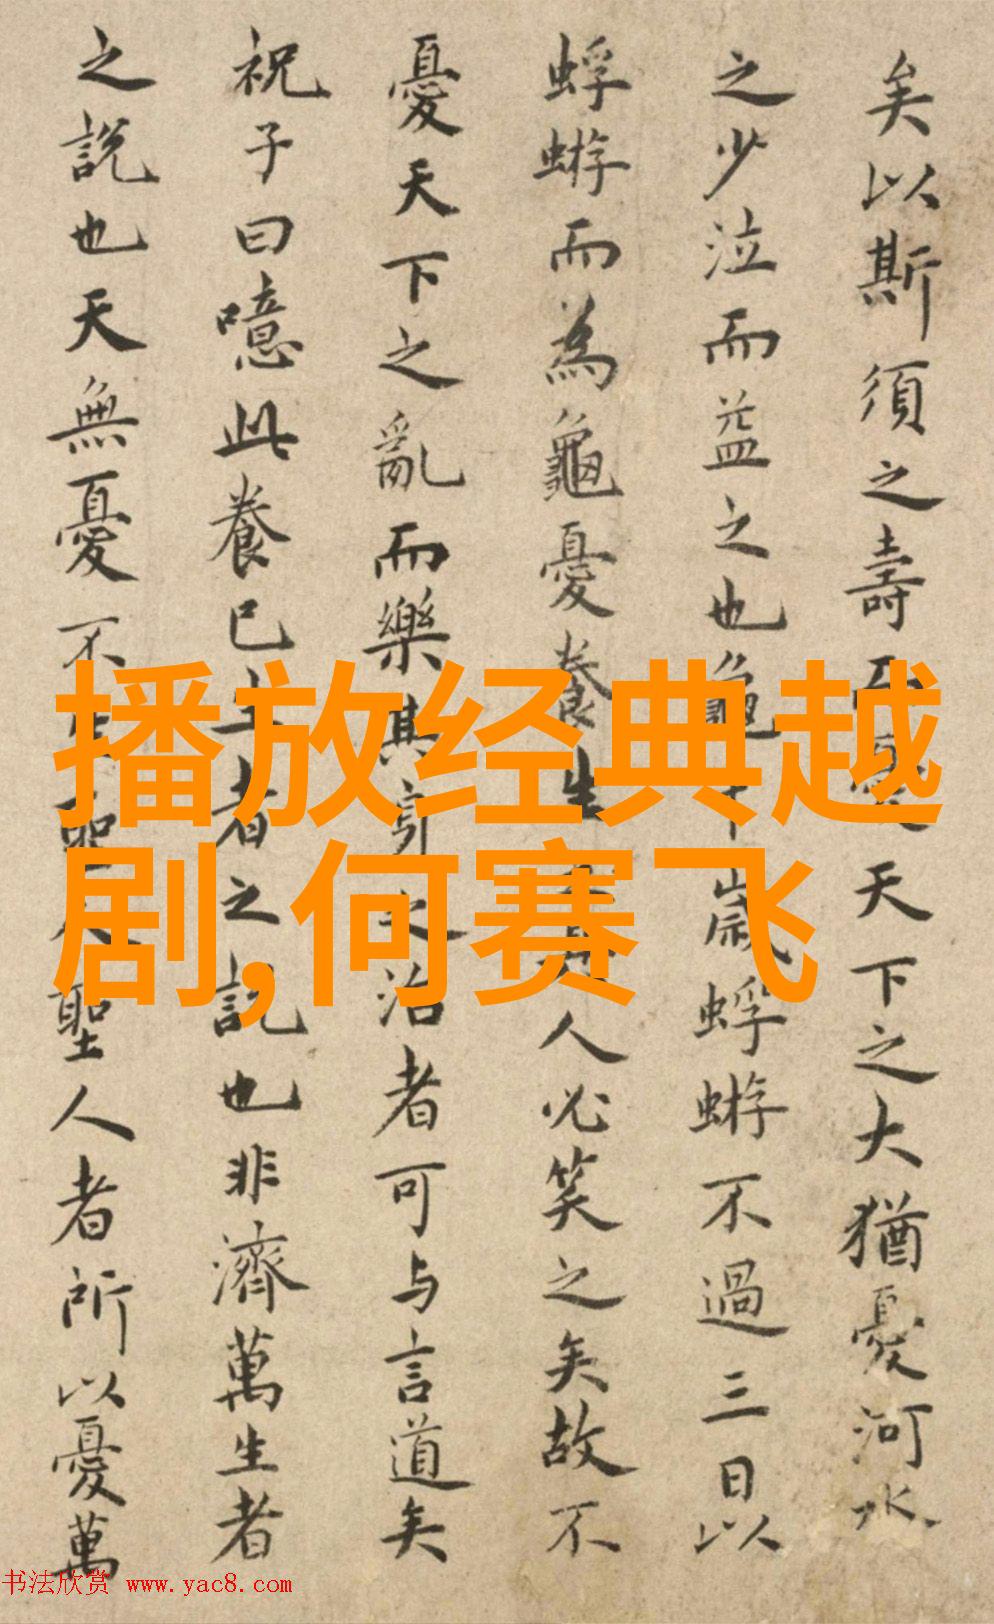 矣以斯須之壽而憂天下之大猶憂河水
之少泣而益之也龜千歲蜉蝣不過三日以
蜉蝣而為龜憂養生人必笑之矣故不
憂天下之亂而樂其之治者可与言道矣
祝子曰噫此養已生者之說也非濟萬生者
之說也天無憂不生聖人聖人者所以憂萬
播放经典越
剧,何赛飞
书法欣赏 www.yac8.com